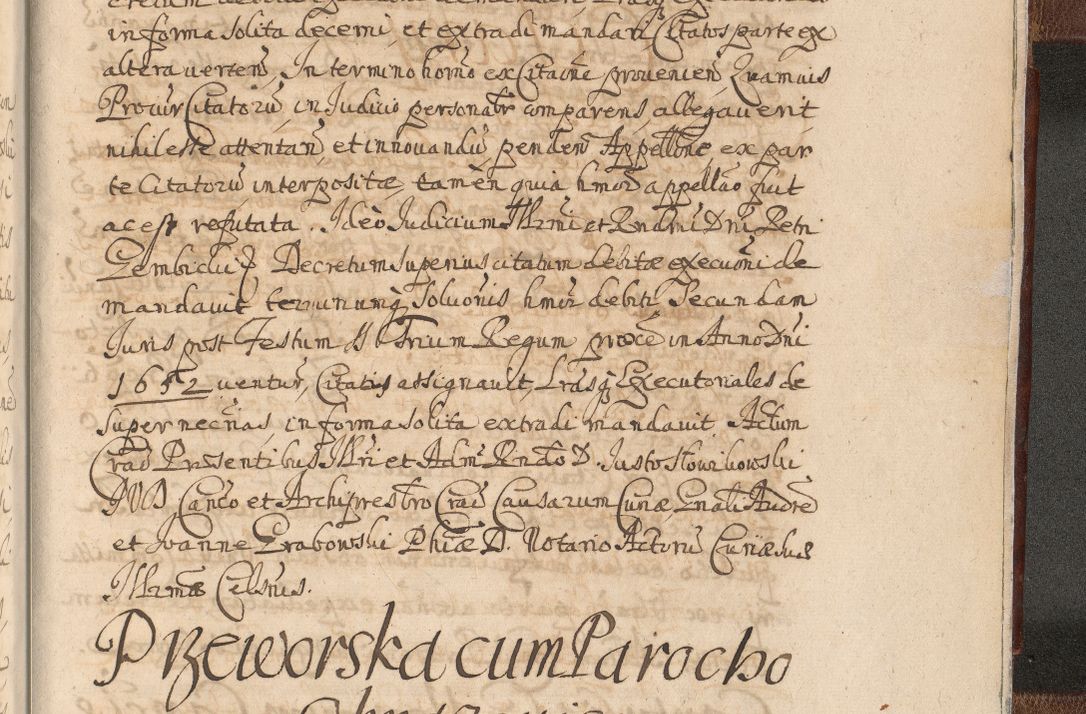 in forma solita decerni, et extradi mandari Citatos parte ex
altera verten̄. In termino horno ex Citaoñe provenien̄ Quamvis
Procur Citatorū, in Judicio personalr comparens, allegaverit
nihil esse attentan̄, et innovandū penden̄ Appellōne, ex par
te Citatorū interpositæ, tamen quia hmōi appellāo fuit
ac est refutata. Ideo Judicium Illrmi et Rndmi Dni Petri
Gembicki Decretum superius citatum debitæ execuōni de
mandavit terminumq̨ Soluōnis hmōi debiti Secundam
Juris post Festum SS Trium Regum proxē in Anno Dni
1652 ventur̄, Citatis assignavit, Lrasq̨ Executoriales de
super necrīas, in forma solita extradi mandavit Actum
Crac̄ Præsentibus Illri et Adm̄ Rndo D. Justo Słowikowski
JVD Canco et Archipresbro Crac̄ Causarum Curiæ Gnali Audre
et Joanne Grabowski Phiæ D. Notario Actorū Curiæ suæ
Illrmæ Celsnis.
Przeworska cum Parocho